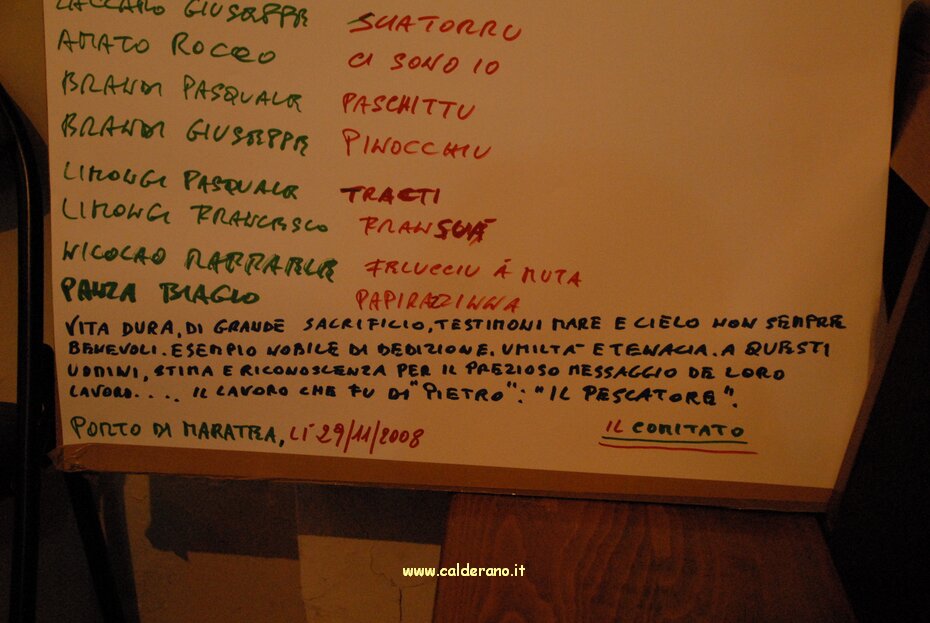 ZACCARO GIUSEPPE SCIATORRU
AMATO ROCCO CI SONO IO
BRANDI PASQUALE PASCHITTU
BRANDI GIUSEPPE PINOCCHIU
LIMONGI PASQUALE TRACTI
LIMONGI FRANCESCO FRANSUÁ
NICOLAO RAFFAELE FELUCCIU Á MUTA
PANZA BIAGIO PAPIRAZINNA
VITA DURA, DI GRANDE SACRIFICIO, TESTIMONI MARE E CIELO NON SEMPRE
BENEVOLI. ESEMPIO NOBILE DI DEDIZIONE, UMILTA' E TENACIA. A QUESTI
UOMINI, STIMA E RICONOSCENZA PER IL PREZIOSO MESSAGGIO DE LORO
LAVORO.... IL LAVORO CHE FU DI "PIETRO": "IL PESCATORE".
PORTO DI MARATEA, LI' 29/11/2008 IL COMITATO
www.calderano.it